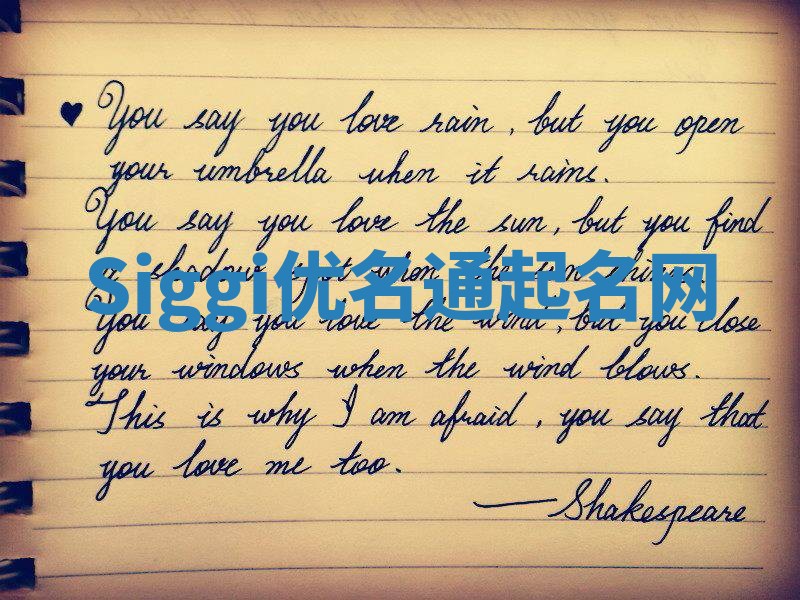 ♥ You say you love rain, but you open
your umbrella when it rains.
You say you love the sun, but you find
a shadow spot when the sun shines.
Siggi优名通起名网
You say you love the wind, but you close
your windows when the wind blows.
This is why I am afraid, you say that
you love me too.
—Shakespeare